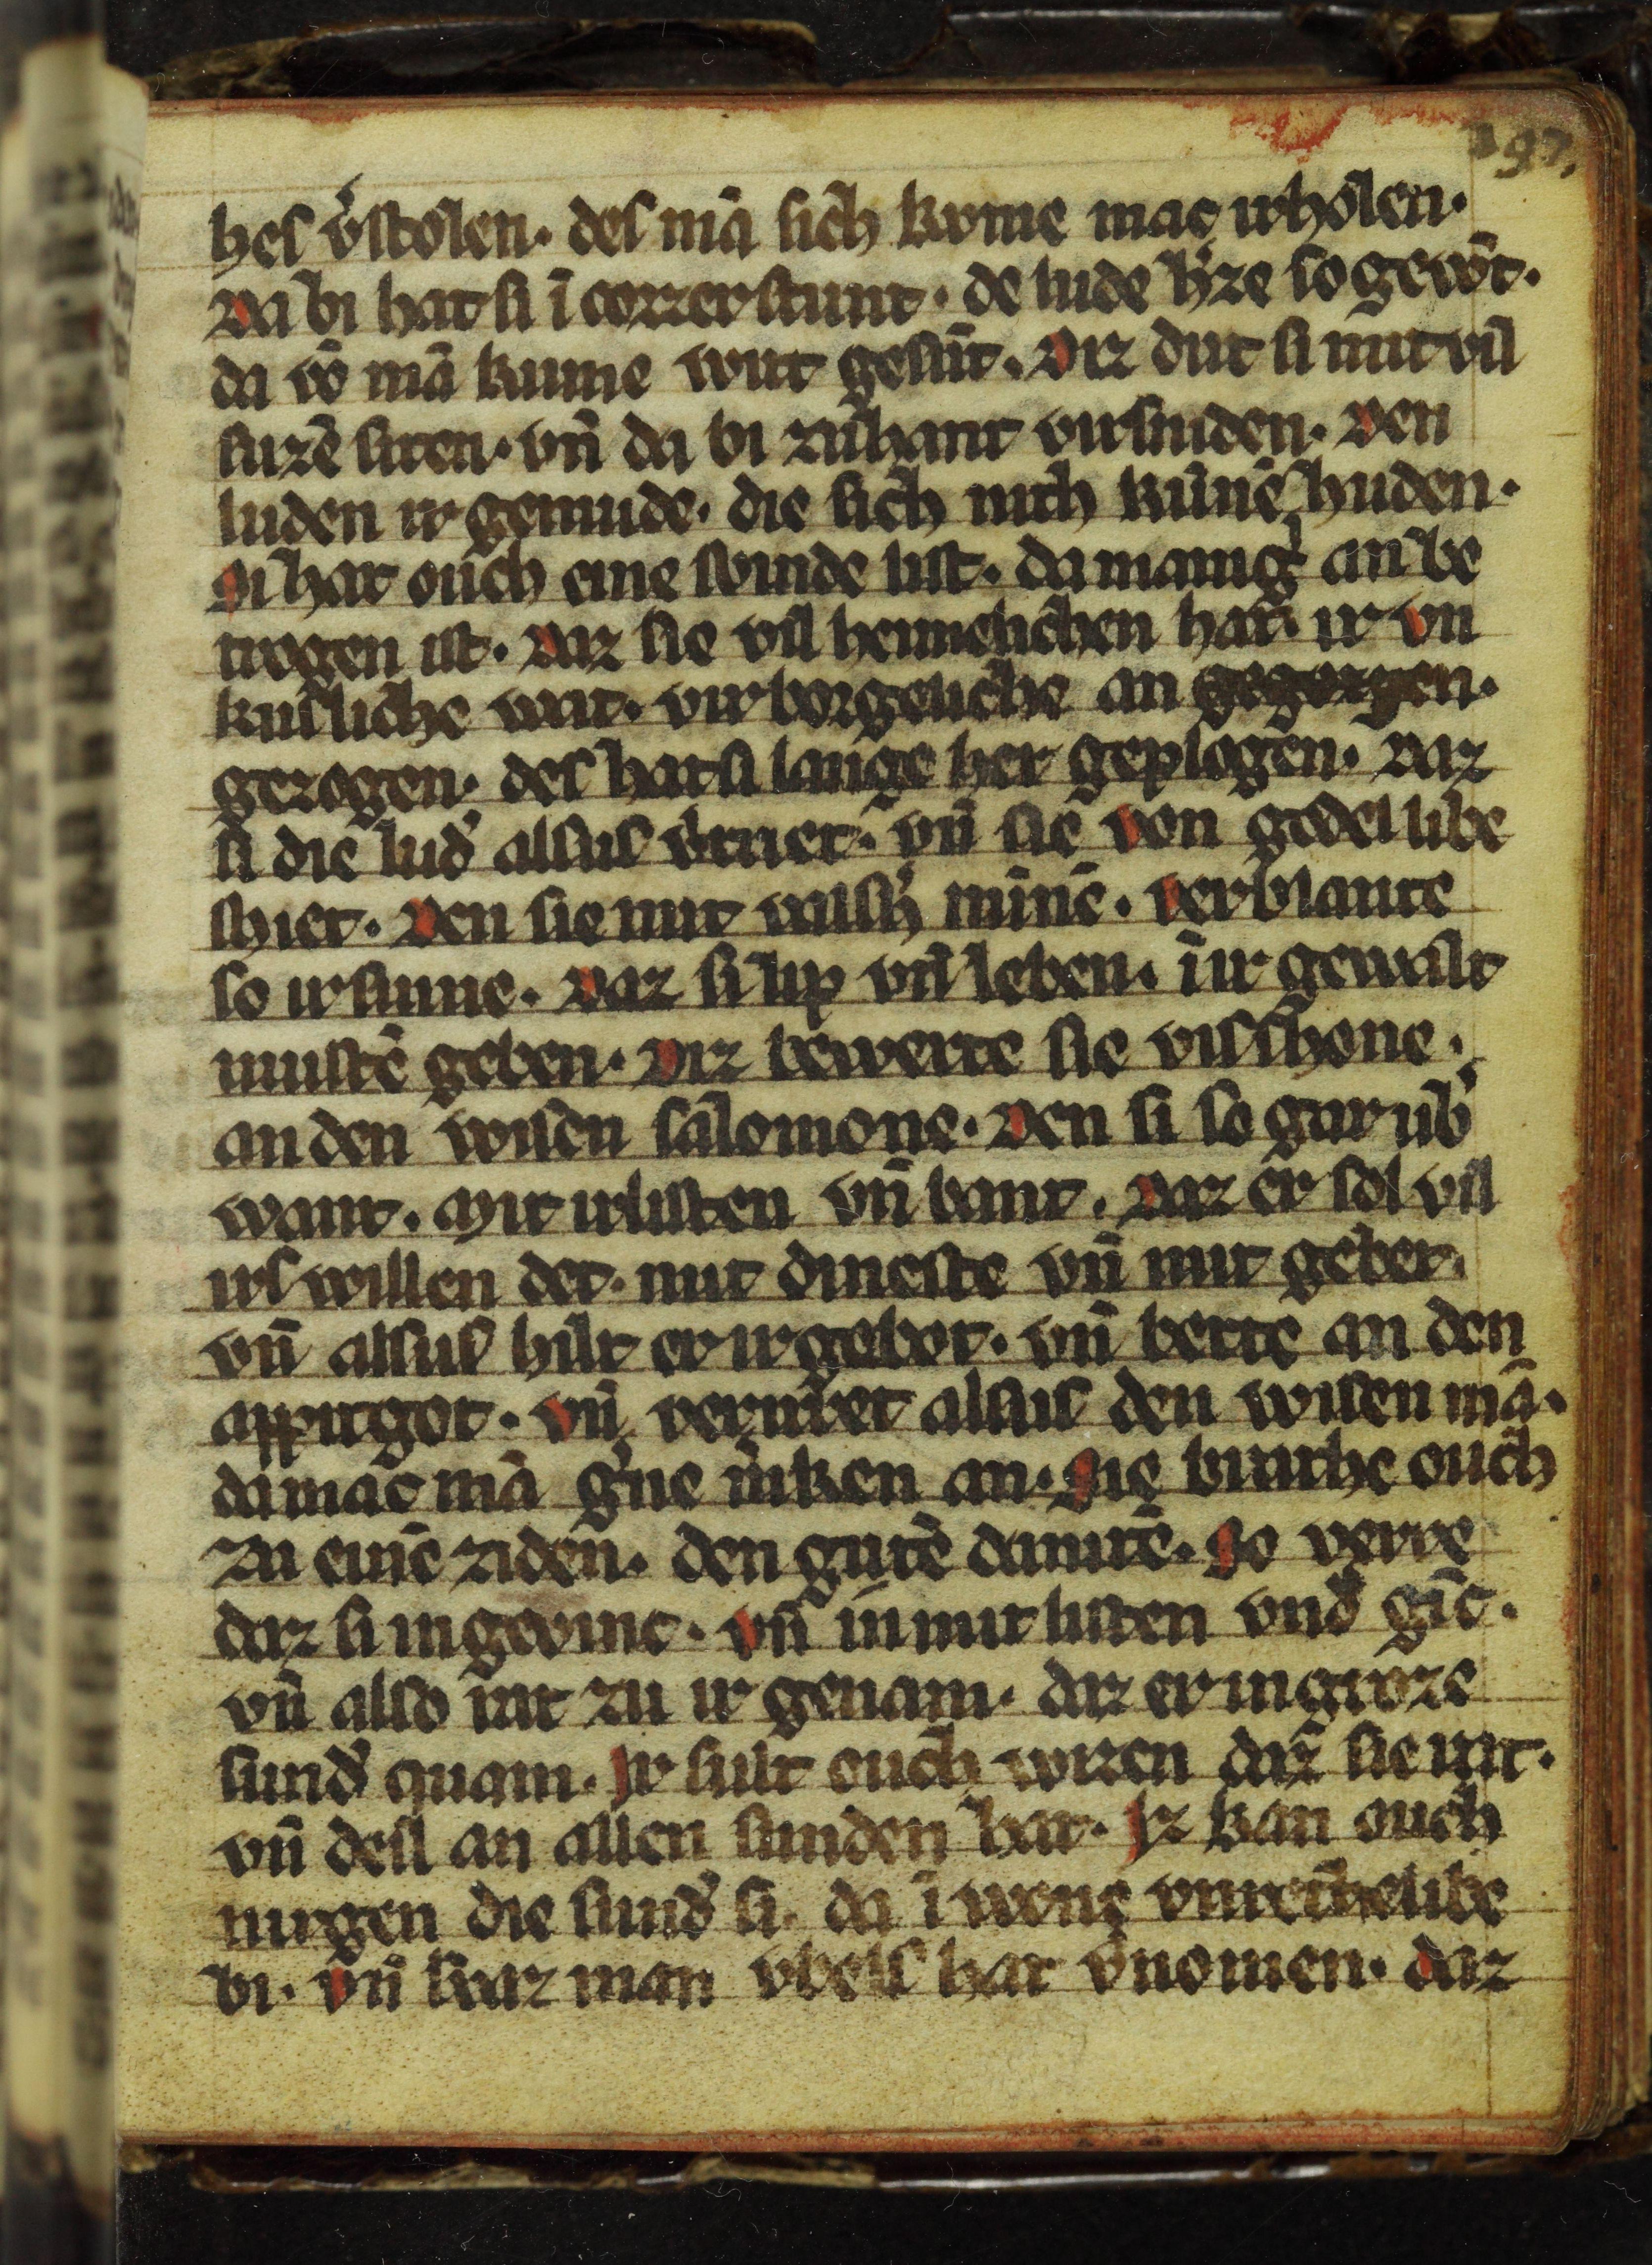 197.
hes v̓stolen. des mā sich kvme mac irholen.
Da bi hat si ī corzer stunt. de lude h̓ze so gewūt.
da vō mā kume wirt gesūt. Diz dut si mit vil
suzē siten. vn̄ da bi zuhant virsniden. Den
luden ir gemude. die sich nith kūnē huden.
Si hat ouch eine swinde list. da manig̓ an be
trogen ist. Daz sie vil heimelichen hat. ir vn
kusliche wat. virborgeliche an gegozgen.
gezogen. des hat si lange her geplogen. Daz
si die lud̓ alsus v̓riet. vn̄ sie von gedel libe
shiet. Den sie mit valsh̓ mīnē. verblante
so ir sinne. Daz si lip vn̄ leben. ī ir gewalt
mustē geben. Diz bewerte sie vil shone.
an den wisen salomone. Den si so gar ub̓
want. Mit irlisten vn̄ bant. Daz er sol vil
irs willen det. mit dineste vn̄ mit gebet.
vn̄ alsus hilt er ir gebot. vn̄ bette an den
appitgot. vn̄ verriret alsus den wisen mā.
da mac mā g̓ne m̓ken an. Sie brathe ouch
zu einē ziden. den gutē dauitē. So verre
daz si in gevinc. vn̄ in mit listen vnd̓ gīc.
vn̄ also nit zu ir genam. daz er in groze
sund̓ quam. Ir sult ouch wizen daz sie rat.
vn̄ deil an allen sunden hat. Iz kan ouch
nirgen die sund̓ si. da ī wone vnrethe libe
bi. vn̄ swaz man vbels hat v̓nomen. daz